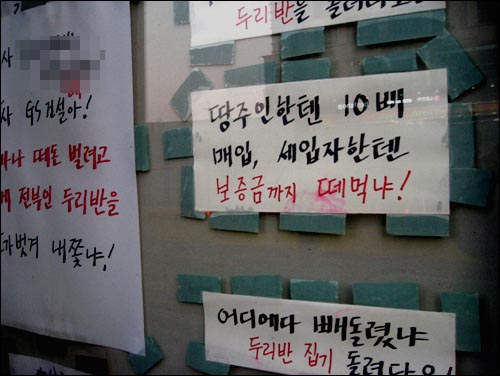 사 GS건설아!
떼돈 벌려고
전부인 두리반을
내쫓냐!
두리반을
땅주인한텐 10배
매입, 세입자한텐
보증금까지 떼먹냐!
어디에다 빼돌렸냐
두리반 집기